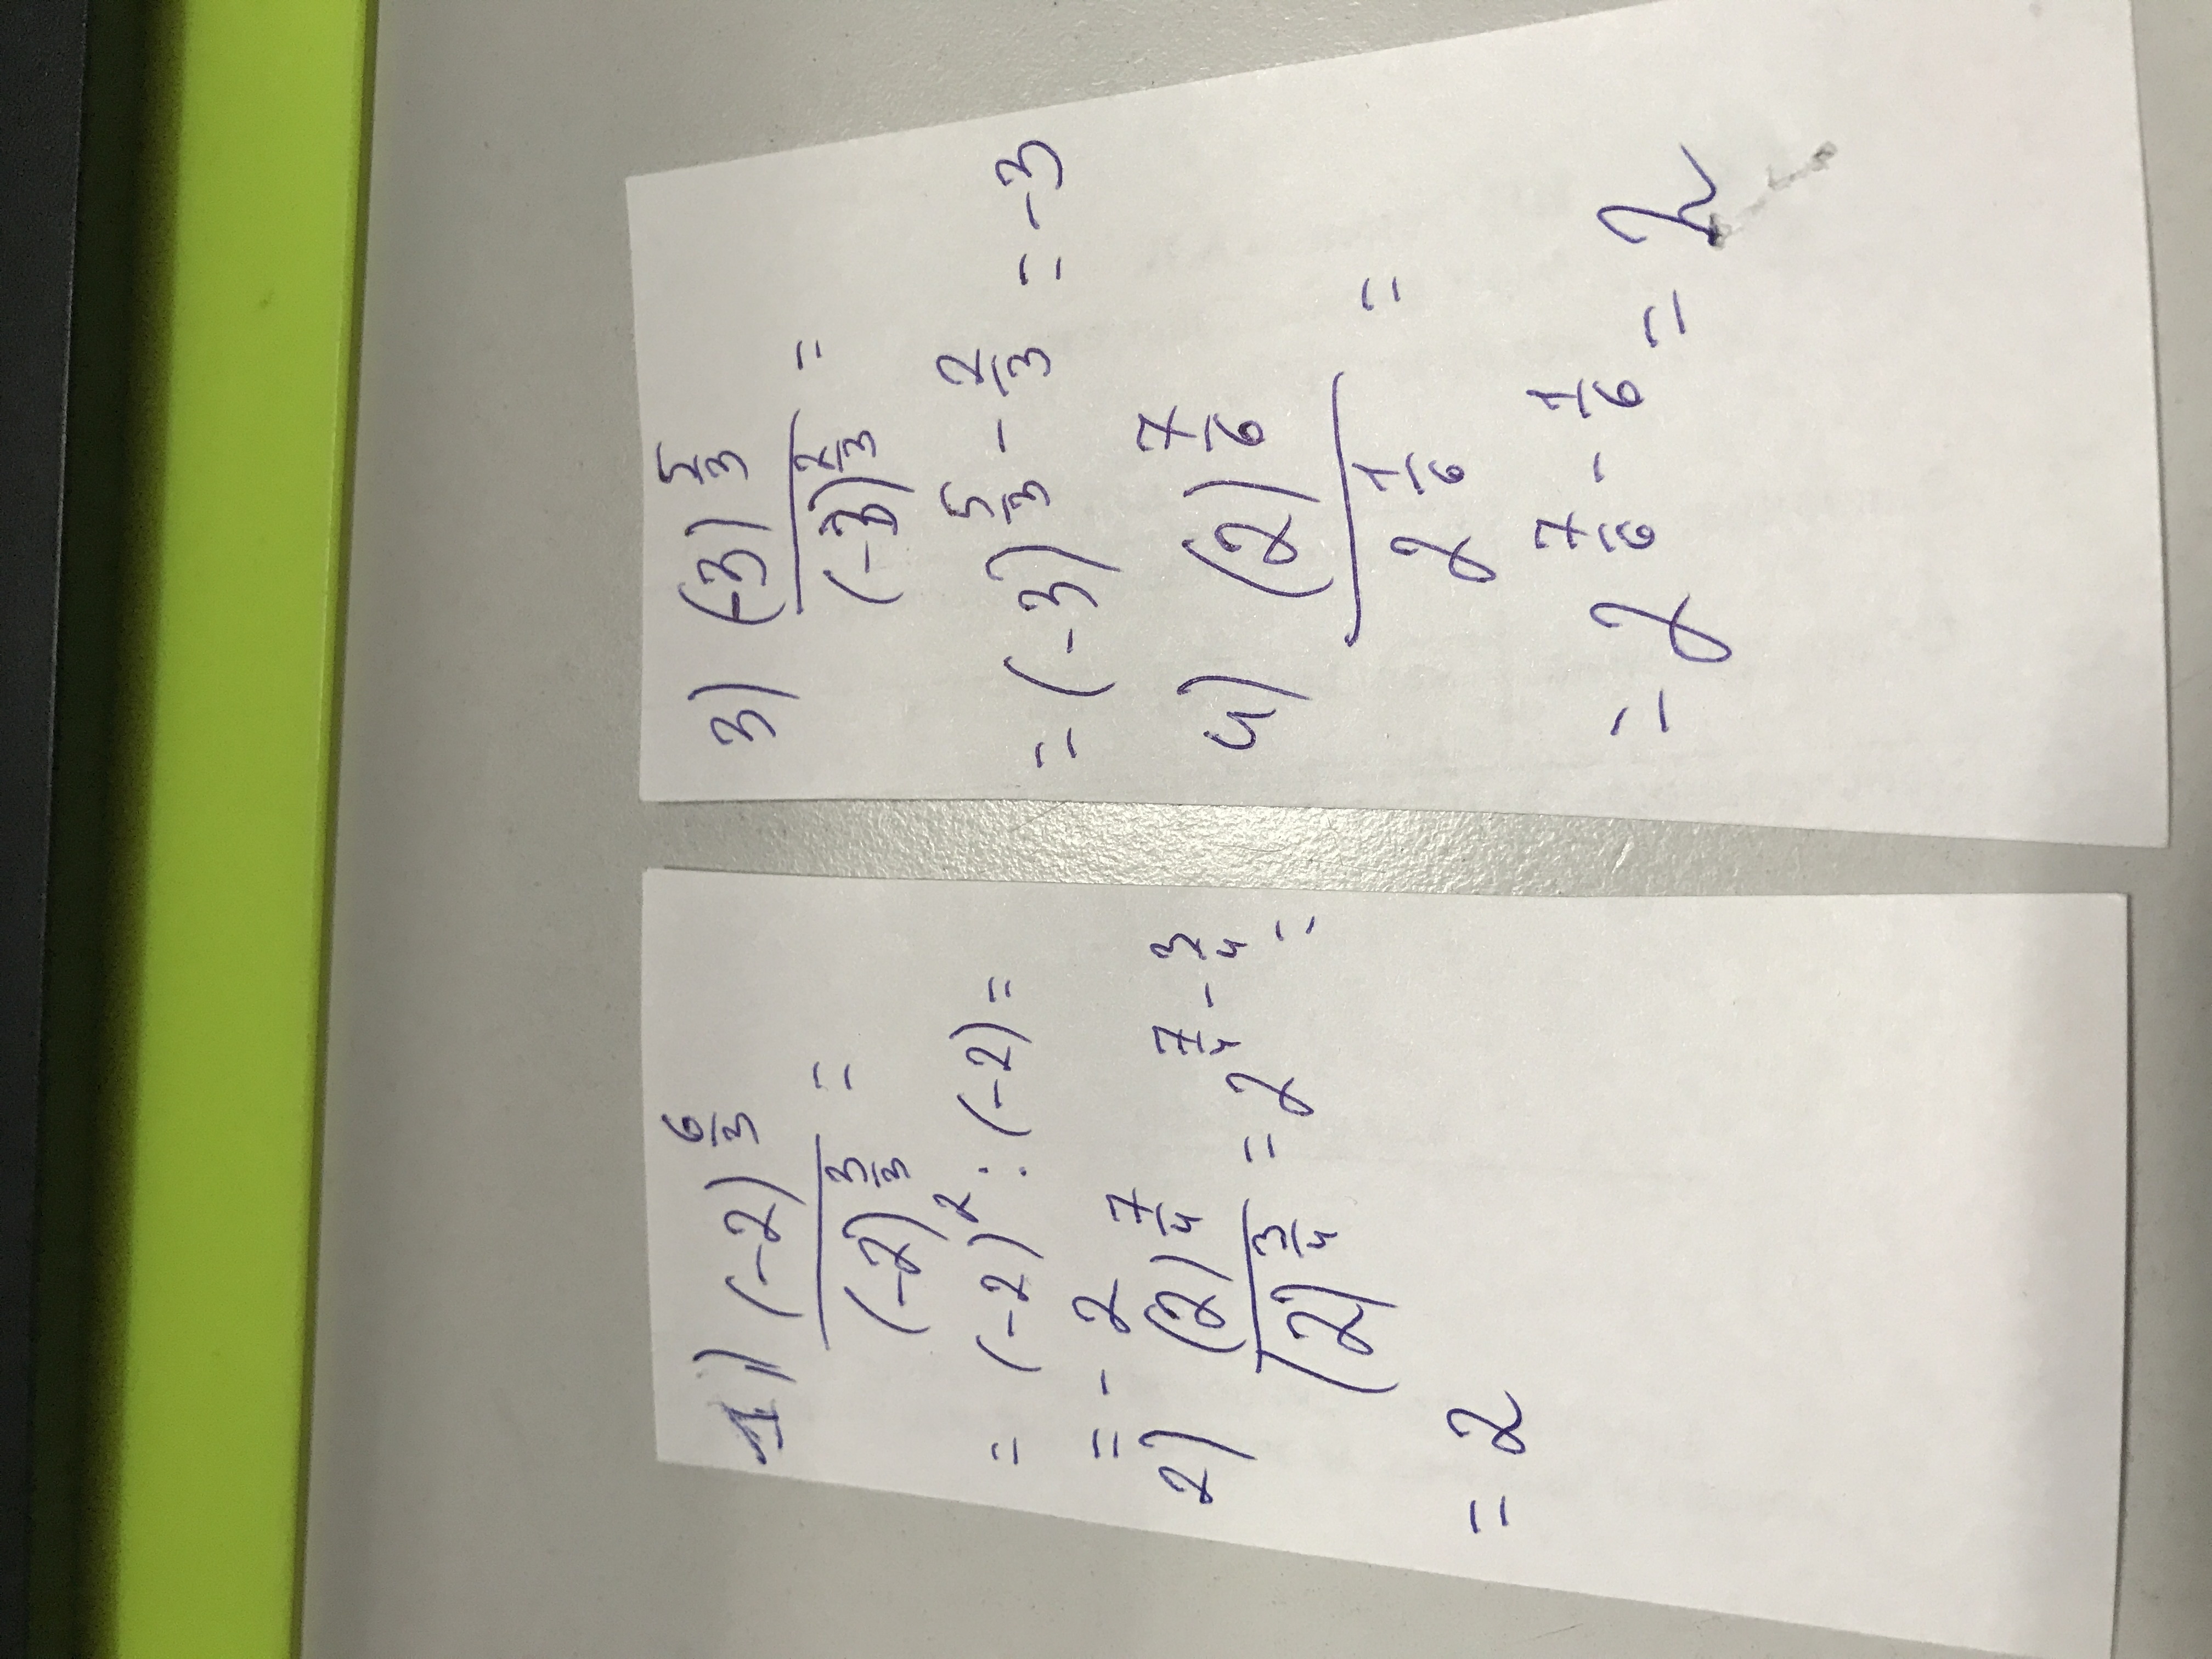 1) (-2)^{6/3} / (-2)^{3/3} =
= (-2)^2 : (-2) =
= -2
2) (2)^{7/4} / (2)^{3/4} = 2^{7/4 - 3/4} =
= 2
3) (-3)^{5/3} / (-3)^{2/3} =
= (-3)^{5/3 - 2/3} = -3
4) (2)^{7/6} / 2^{1/6} =
= 2^{7/6 - 1/6} = 2